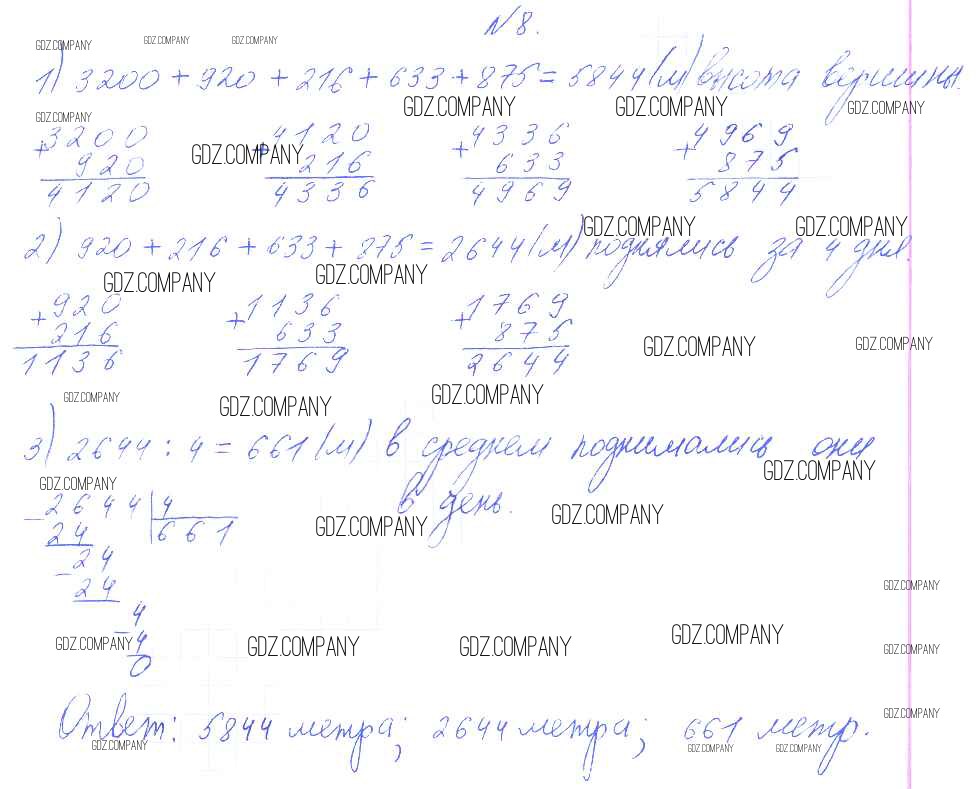 № 8.
GDZ.COMPANY GDZ.COMPANY GDZ.COMPANY
1) 3200 + 920 + 216 + 633 + 875 = 5844 (м) высота вершины.
GDZ.COMPANY GDZ.COMPANY GDZ.COMPANY
GDZ.COMPANY
+3200 +4120 +4336 +4969
920 216 633 875
GDZ.COMPANY
4120 4336 4969 5844
GDZ.COMPANY GDZ.COMPANY
2) 920 + 216 + 633 + 875 = 2644 (м) поднялись за 4 дня.
GDZ.COMPANY GDZ.COMPANY
+920 +1136 +1769
216 633 875
1136 1769 2644
GDZ.COMPANY GDZ.COMPANY
GDZ.COMPANY GDZ.COMPANY GDZ.COMPANY
3) 2644 : 4 = 661 (м) в среднем поднимались они
GDZ.COMPANY
GDZ.COMPANY
в день.
−2644 4
24 661
GDZ.COMPANY GDZ.COMPANY
−24
24
GDZ.COMPANY
−4
4
GDZ.COMPANY GDZ.COMPANY GDZ.COMPANY GDZ.COMPANY GDZ.COMPANY
0
Ответ: 5844 метра; 2644 метра; 661 метр.
GDZ.COMPANY
GDZ.COMPANY GDZ.COMPANY GDZ.COMPANY